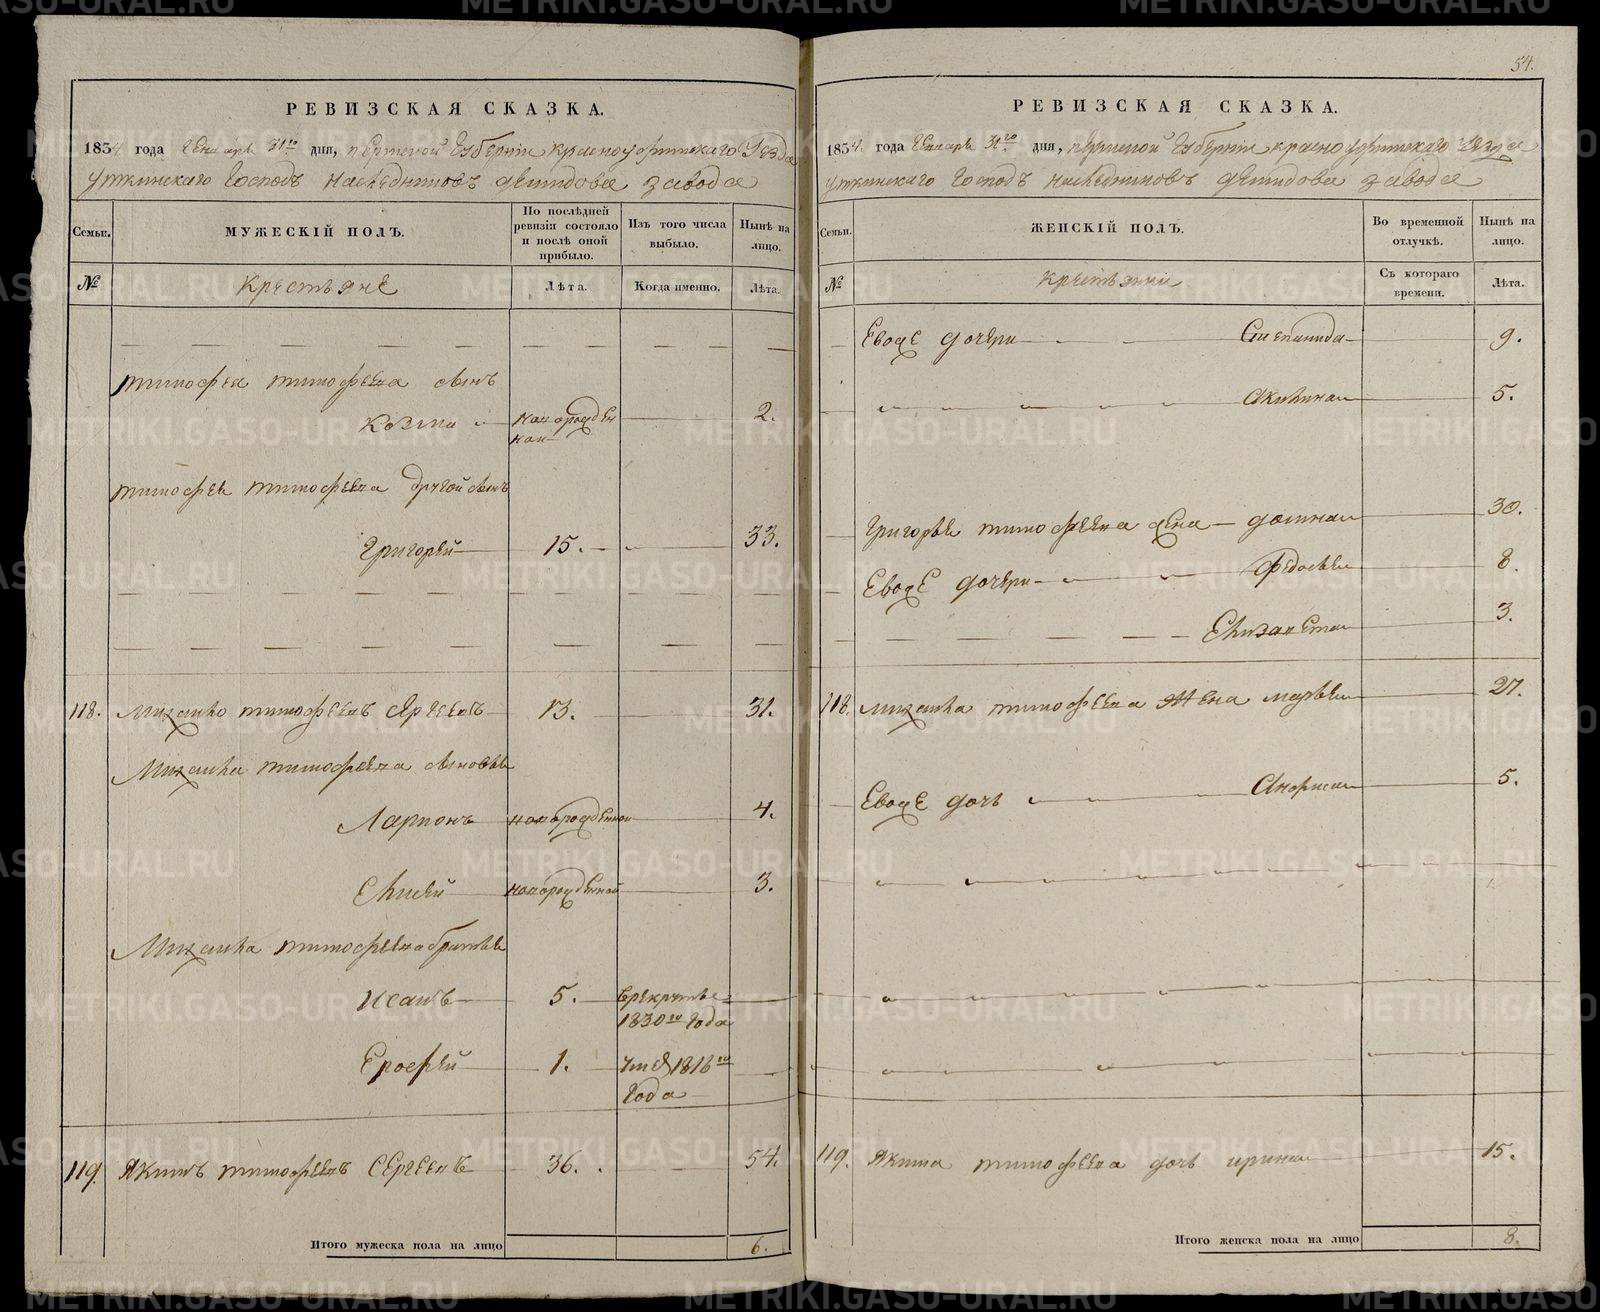 54.
РЕВИЗСКАЯ СКАЗКА.
1834 года Генваря 31го дня, Пермской Губернии Красноуфимскаго Уезда
Уткинскаго Господъ Наследниковъ Демидова завода
Семьи.
МУЖЕСКІЙ ПОЛЪ.
По послѣдней ревизіи состояло и послѣ оной прибыло.
Изъ того числа выбыло.
Нынѣ на лицо.
№
Крестьяне
Лѣта.
Когда именно.
Лѣта.
Тимофея Тимофеева сынъ
Козма новорожденной 2.
Тимофея Тимофеева другой сынъ
Григорей 15. 33.
118. Михайло Тимофеевъ Сергеевъ 13. 31.
Михайла Тимофеева сыновья
Ларионъ новорожденной 4.
Елисей новорожденной 3.
Михайла Тимофеева братья
Исакъ 5. в рекруты
1830го года
Ерофей 1. 1816го
года
119. Якимъ Тимофеевъ Сергеевъ 36. 54.
Итого мужеска пола на лицо 6.
РЕВИЗСКАЯ СКАЗКА.
1834 года Генваря 31го дня, Пермской Губернии Красноуфимскаго Уезда
Уткинскаго Господъ Наследниковъ Демидова завода
Семьи.
ЖЕНСКІЙ ПОЛЪ.
Во временной отлучкѣ.
Нынѣ на лицо.
№
Крестьянки
Съ котораго времени.
Лѣта.
Евоже дочери Степанида 9.
Акилина 5.
Григорья Тимофеева жена 30.
Евоже дочери Федосья 8.
Елизавета 3.
118. Михайла Тимофеева жена Марья 27.
Евоже дочь Анфиса 5.
119. Якима Тимофеева дочь Ирина 15.
Итого женска пола на лицо 8.
METRIKI.GASO-URAL.RU